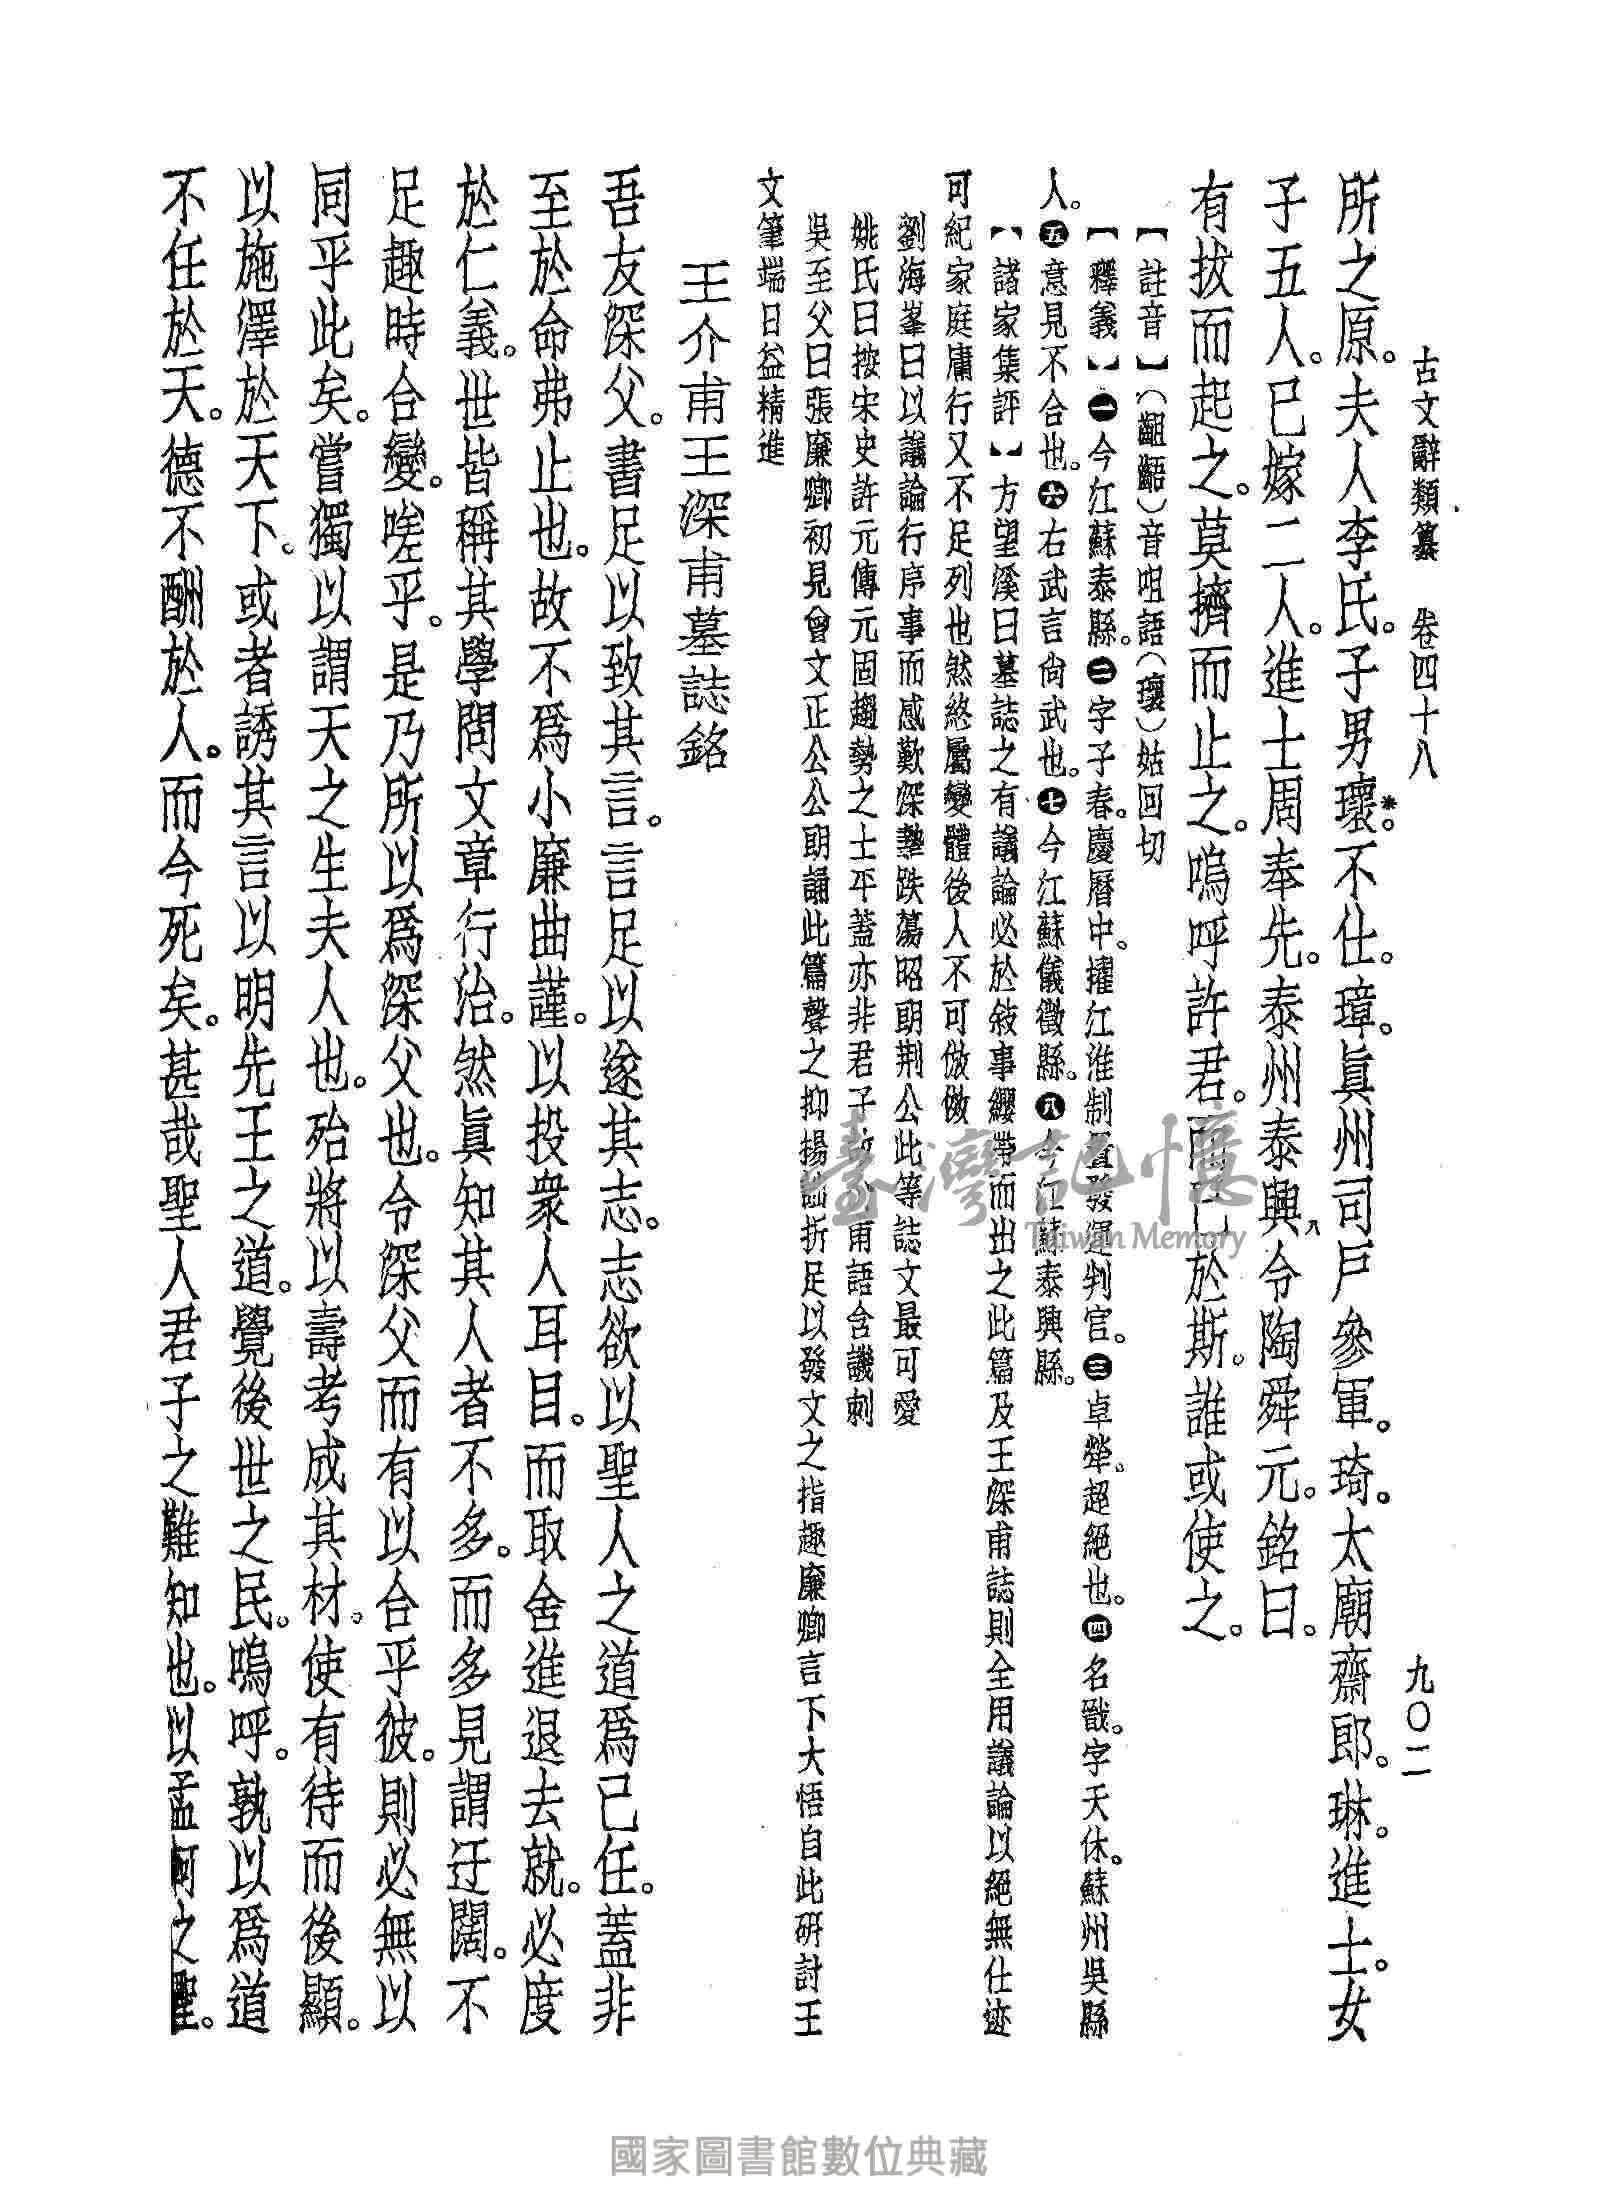 古文辭類纂　卷四十八　九〇二
所之原。夫人李氏。子男瓌*。不仕。璋。眞州司戶參軍。琦。太廟齋郎。琳。進士。女
子五人。已嫁二人。進士周奉先。泰州泰興八令陶舜元。銘曰。
有拔而起之。莫擠而止之。嗚呼許君。而已於斯。誰或使之。
【註音】（齟齬）音咀語（瓌）姑回切
【釋義】㊀今江蘇泰縣。㊁字子春。慶曆中。擢江淮制置發運判官。㊂卓犖。超絕也。㊃名戩。字天休。蘇州吳縣
人。㊄意見不合也。㊅右武言尙武也。㊆今江蘇儀徵縣。㊇今江蘇泰興縣。
【諸家集評】方望溪曰墓誌之有議論必於敍事纓帶而出之此篇及王深甫誌則全用議論以絕無仕迹
可紀家庭庸行又不足列也然終屬變體後人不可倣傚
劉海峯曰以議論行序事而感歎深摯跌蕩昭朗荆公此等誌文最可愛
姚氏曰按宋史許元傳元固趨勢之士平蓋亦非君子故介甫語含譏刺
吳至父曰張廉卿初見曾文正公公朗誦此篇聲之抑揚詘折足以發文之指趣廉卿言下大悟自此研討王
文筆端日益精進
王介甫王深甫墓誌銘
吾友深父。書足以致其言。言足以遂其志。志欲以聖人之道爲己任。蓋非
至於命弗止也。故不爲小廉曲謹。以投衆人耳目。而取舍進退去就。必度
於仁義。世皆稱其學問文章行治。然眞知其人者不多。而多見謂迂闊。不
足趣時合變。嗟乎。是乃所以爲深父也。令深父而有以合乎彼。則必無以
同乎此矣。嘗獨以謂天之生夫人也。殆將以壽考成其材。使有待而後顯。
以施澤於天下。或者誘其言以明先王之道。覺後世之民。嗚呼。孰以爲道
不任於天。德不酬於人。而今死矣。甚哉聖人君子之難知也。以孟軻之聖。
臺灣記憶
Taiwan Memory
國家圖書館數位典藏